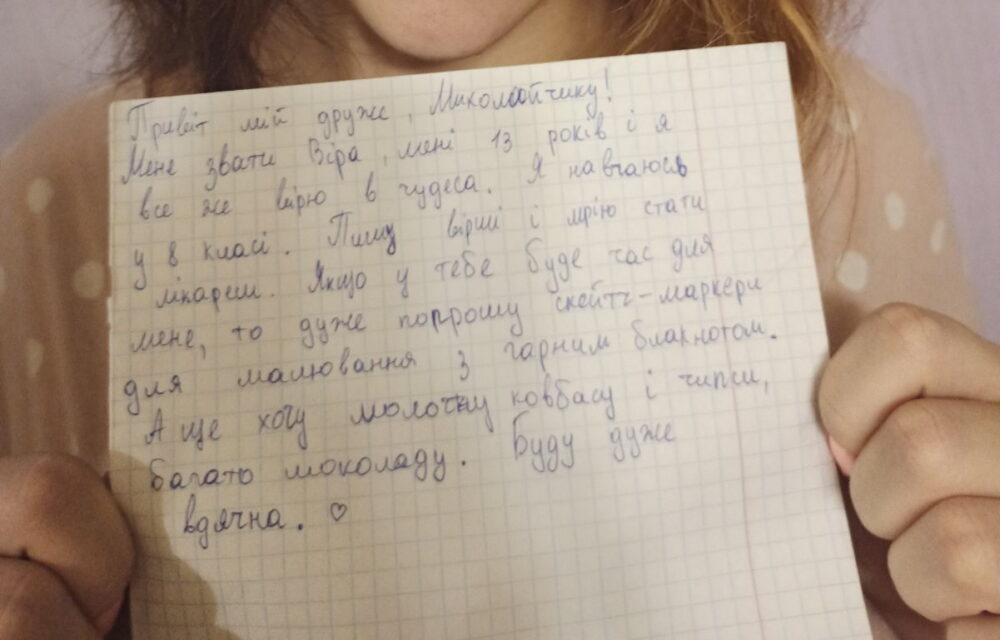 Привіт мій друже, Миколайчику!
Мене звати Віра, мені 13 років і я
все же вірю в чудеса. Я навчаюсь
у 8 класі. Пишу вірші і мрію стати
лікарем. Якщо у тебе буде час для
мене, то дуже попрошу скейтч-маркери
для малювання з гарним блакнотом.
А ще хочу молочну ковбасу і чипси,
багато шоколаду. Буду дуже
вдячна. ♡